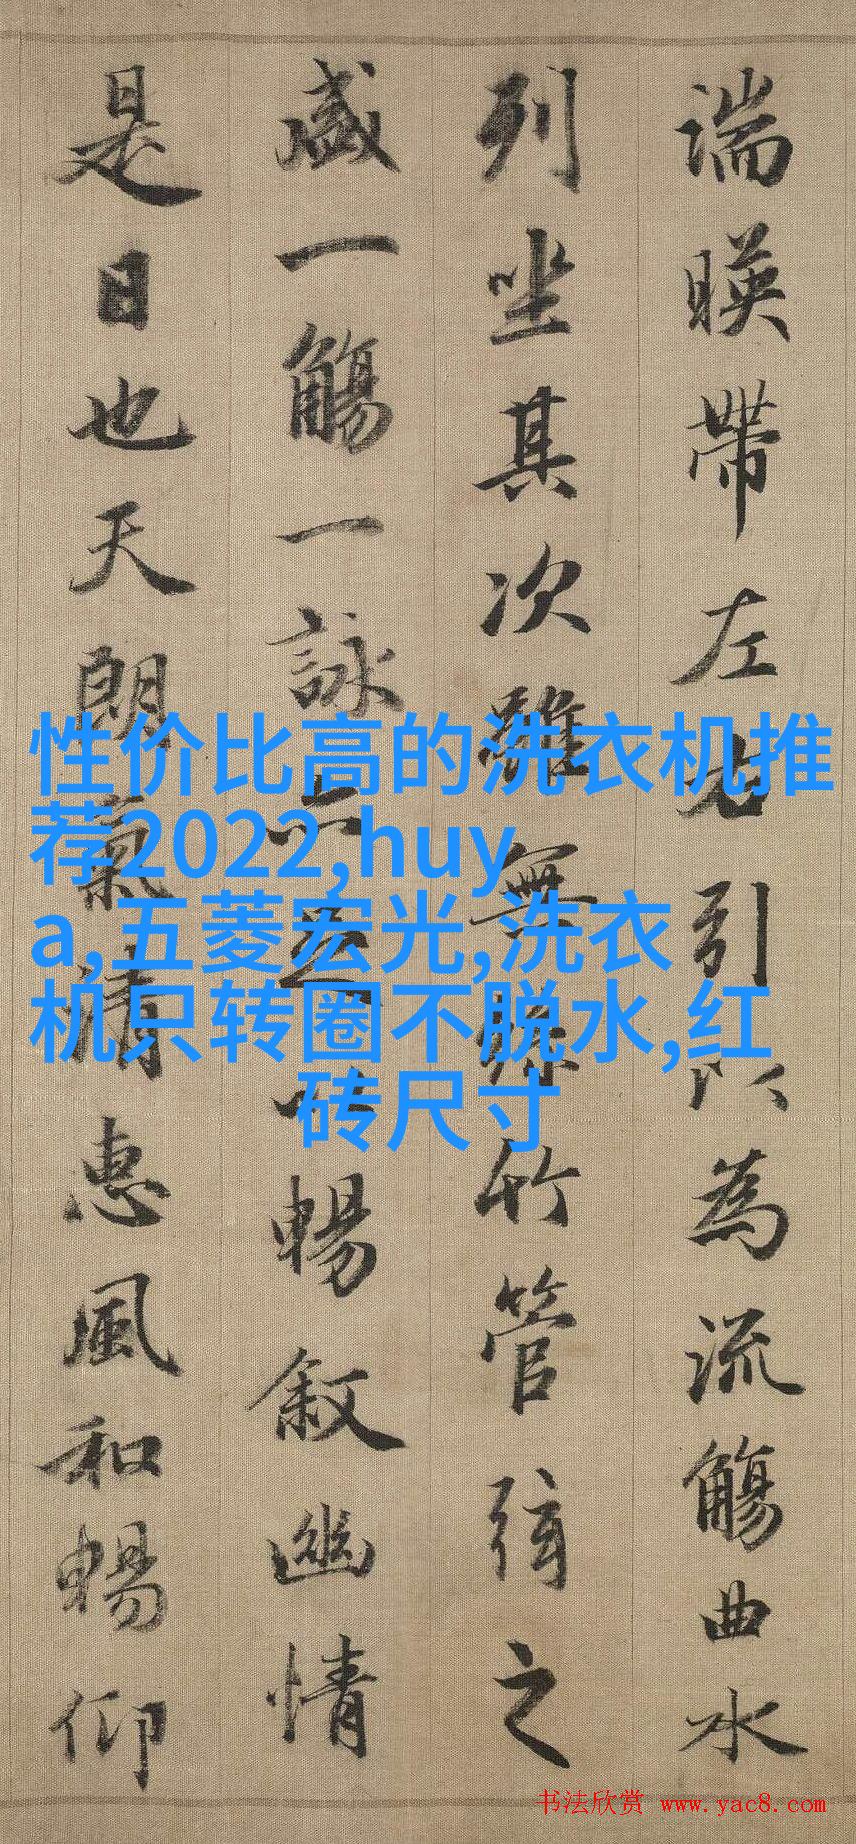 湍暎帶左右引以為流觴曲水
列坐其次雖無絲竹管弦之
盛一觴一詠亦足以暢叙幽情
是日也天朗氣清惠風和暢仰
性价比高的洗衣机推
荐2022,huy
a,五菱宏光,洗衣
机只转圈不脱水,红
砖尺寸
书法欣赏 www.yac8.com